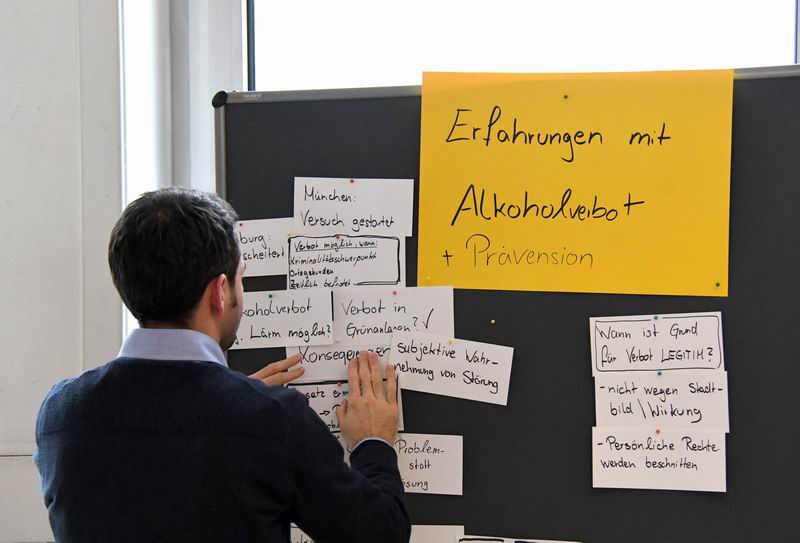 Erfahrungen mit
Alkoholverbot
+ Prävension
München:
Versuch gestartet
burg:
scheitert
Verbot möglich, wenn:
Kriminalitätsschwerpunkt
Ortsgebunden
Zeitlich befristet
koholverbot
Lärm möglich?
Verbot in
Grünanlagen? ✓
subjektive Wahr-
nehmung von Störung
Problem-
statt
ösung
Wann ist Grund
für Verbot LEGITIM?
- nicht wegen Stadt-
bild \ Wirkung
- Persönliche Rechte
werden beschnitten